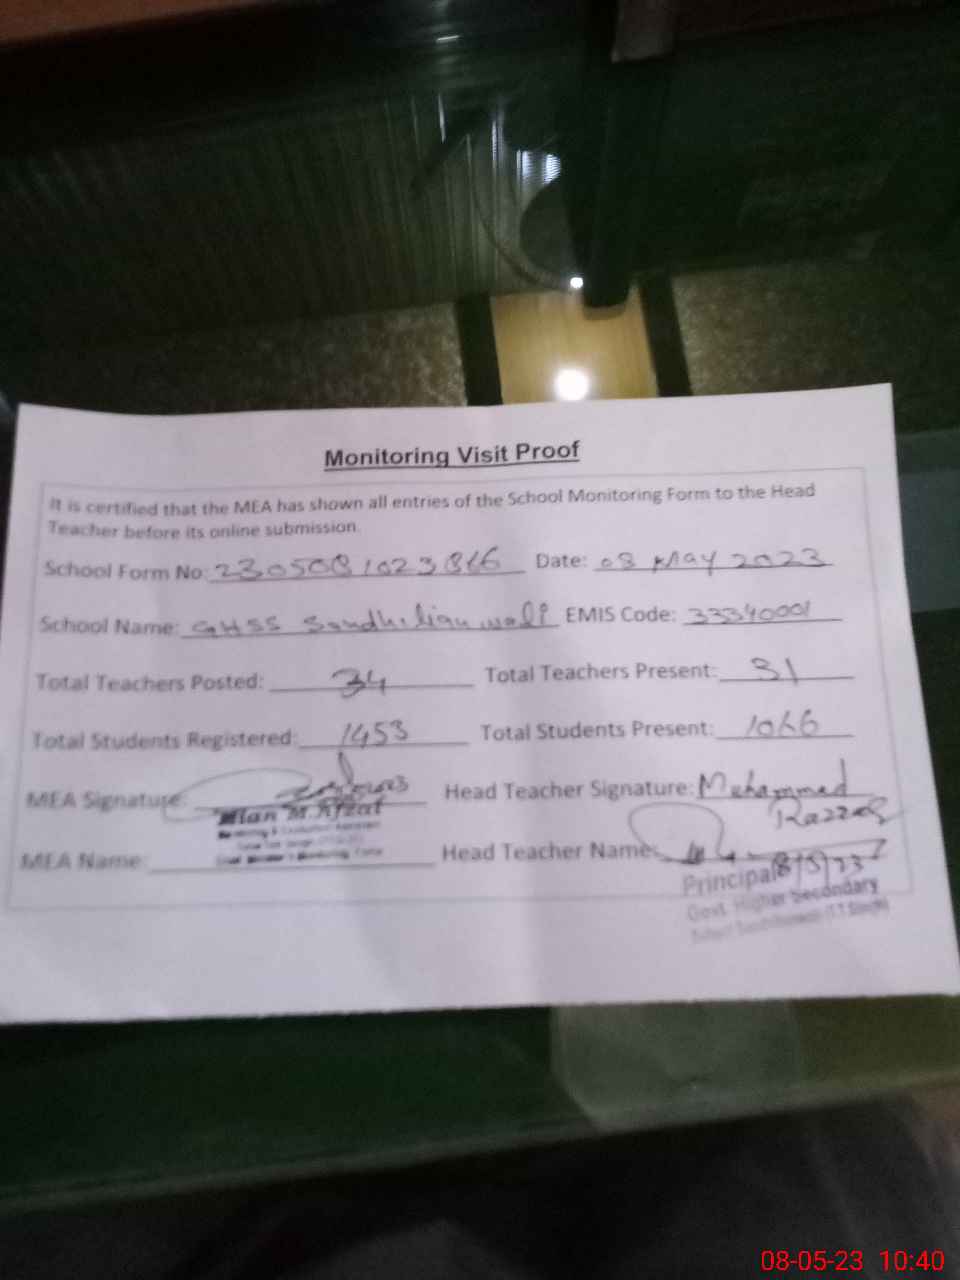 Monitoring Visit Proof
It is certified that the MEA has shown all entries of the School Monitoring Form to the Head
Teacher before its online submission.
School Form No: 2305081023866 Date: 08 May 2023
School Name: GHSS Sandhilianwali EMIS Code: 33340001
Total Teachers Posted: 34 Total Teachers Present: 31
Total Students Registered: 1453 Total Students Present: 1066
MEA Signature: Head Teacher Signature: Muhammad
Razzaq
Mian M. Afzal
Monitoring & Evaluation Assistant
MEA Name: Head Teacher Name:
Principal 8/5/23
Govt. Higher Secondary
08-05-23 10:40